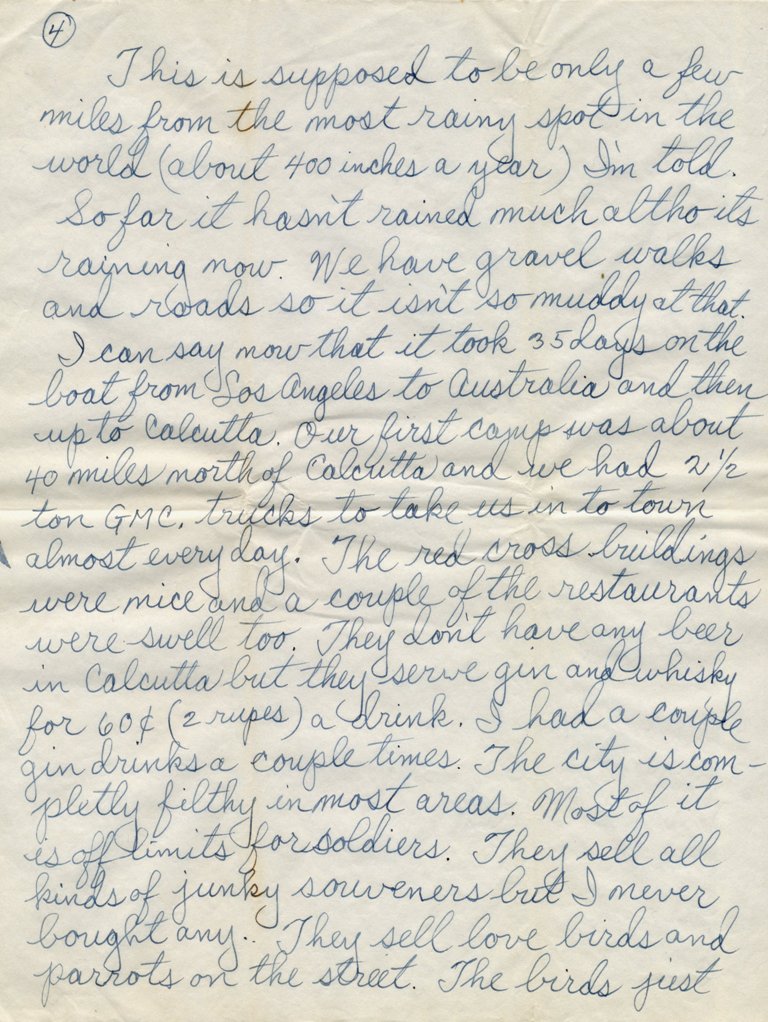 4
This is supposed to be only a few
miles from the most rainy spot in the
world (about 400 inches a year) I'm told.
So far it hasn't rained much altho its
raining now. We have gravel walks
and roads so it isn't so muddy at that.
I can say now that it took 35 days on the
boat from Los Angeles to Australia and then
up to Calcutta. Our first camp was about
40 miles north of Calcutta and we had 2 1/2
ton GMC. trucks to take us in to town
almost every day. The red cross buildings
were nice and a couple of the restaurants
were swell too. They don't have any beer
in Calcutta but they serve gin and whisky
for 60¢ (2 rupes) a drink. I had a couple
gin drinks a couple times. The city is com-
pletly filthy in most areas. Most of it
is off limits for soldiers. They sell all
kinds of junky souveners but I never
bought any.. They sell love birds and
parrots on the street. The birds just